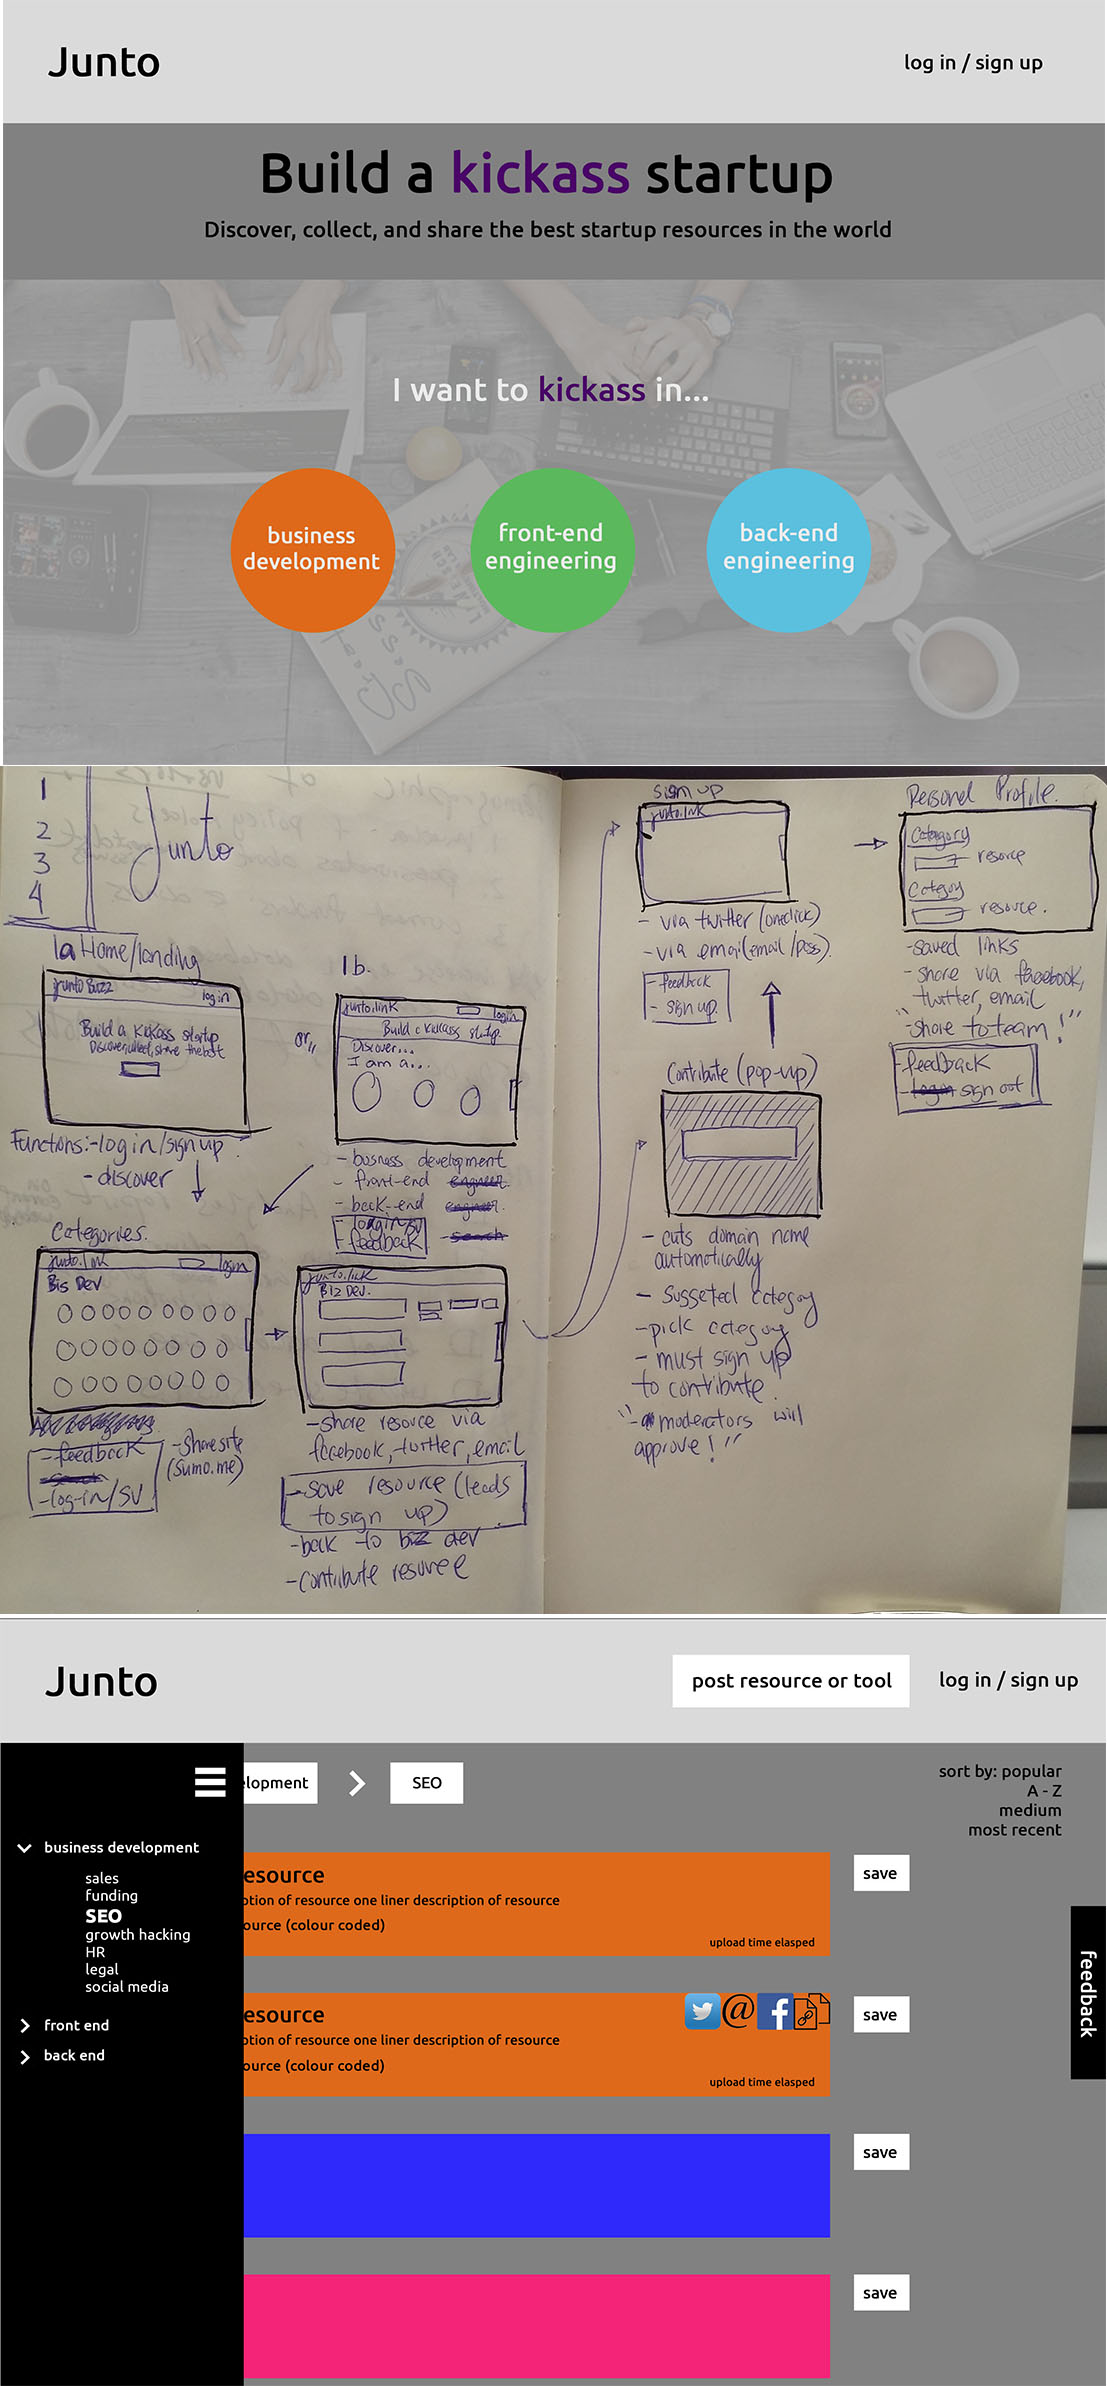 Junto
log in / sign up
Build a kickass startup
Discover, collect, and share the best startup resources in the world
I want to kickass in...
business
development
front-end
engineering
back-end
engineering
1
2
3
4
Junto
1a Home/landing
Junto Buzz
log in
Build a Kickass startup
Discover, collect, share the best
Functions:-log in/sign up
-discover
or,,
1b.
junto.link
login
Build a kickass startup
Discover...
I am a...
- busness development
- front-end engineer
- back-end engineer
- login/su
- feedback
- search
Categories.
junto.link
login
Bis Dev
- feedback
- search
-log-in/SU
-share site
(sumo.me)
junto.link
Biz Dev.
-share resource via
facebook, twitter, email
-save resource (leads
to sign up)
-back to biz dev
-contribute resource
sign up
junto.link
- via twitter (oneclick)
-via email (email/pass).
- feedback
- sign up.
Contribute (pop-up)
- cuts domain name
automatically
- suggeted category
-pick category
- must sign up
to contribute.
"- moderators will
approve!"
Personal Profile.
Category
resource
Category
resource.
-saved links
- share via facebook,
twitter, email
"-share to team!"
-feedback
-login sign out
Junto
post resource or tool
log in / sign up
elopment
SEO
sort by: popular
A - Z
medium
most recent
business development
sales
funding
SEO
growth hacking
HR
legal
social media
front end
back end
esource
otion of resource one liner description of resource
ource (colour coded)
upload time elasped
save
esource
otion of resource one liner description of resource
ource (colour coded)
upload time elasped
save
feedback
save
save